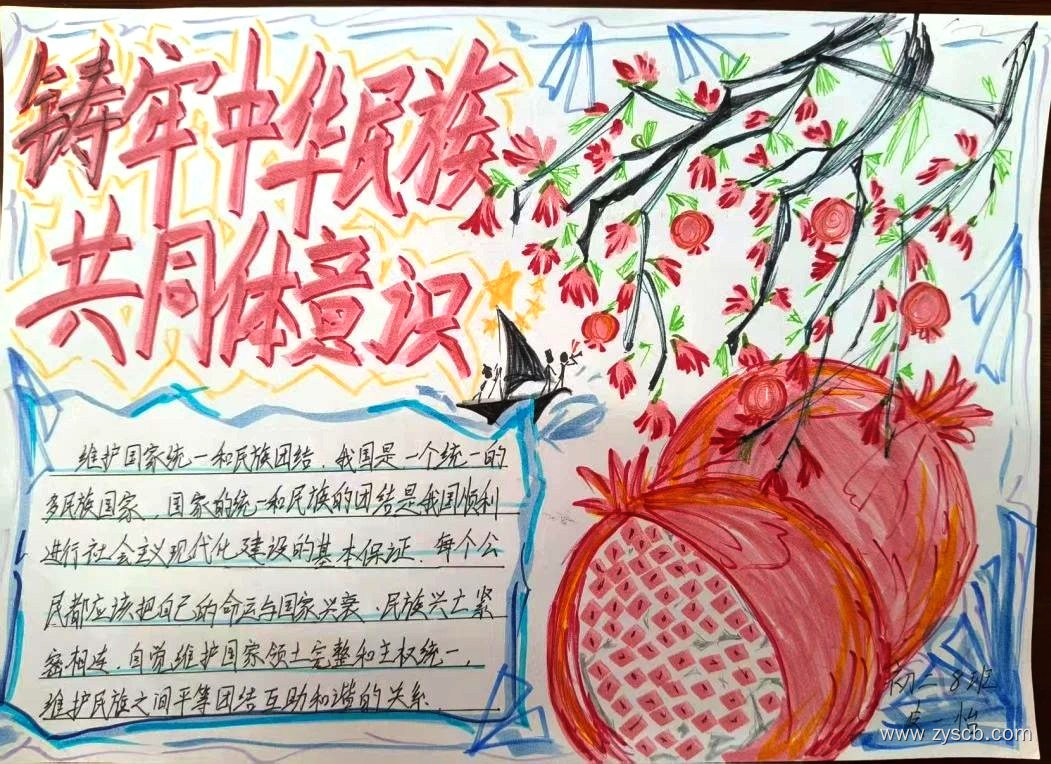 铸牢中华民族
共同体意识
维护国家统一和民族团结，我国是一个统一的
多民族国家，国家的统一和民族的团结是我国顺利
进行社会主义现代化建设的基本保证．每个公
民都应该把自己的命运与国家兴衰、民族兴亡紧
密相连．自觉维护国家领土完整和主权统一，
维护民族之间平等团结互助和谐的关系．
初二8班
一怡
www.zyscb.com